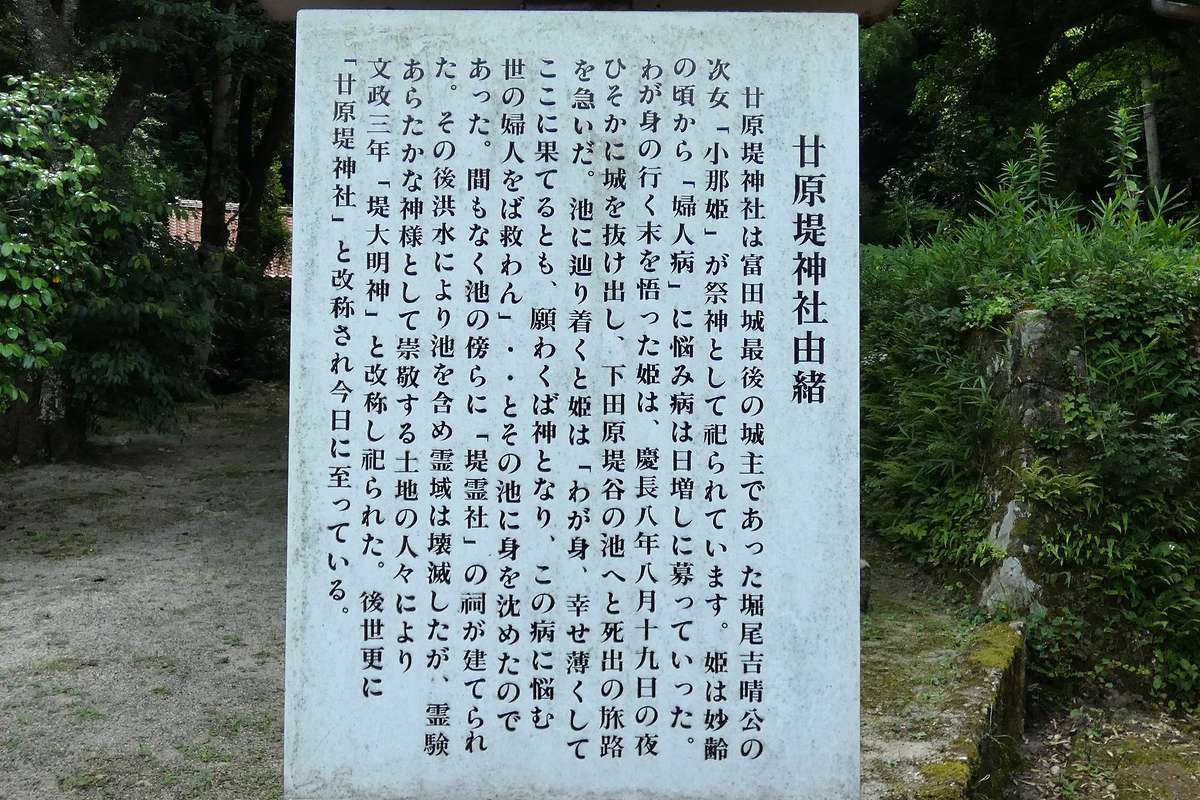 廿原堤神社由緒
廿原堤神社は富田城最後の城主であった堀尾吉晴公の
次女「小那姫」が祭神として祀られています。姫は妙齢
の頃から「婦人病」に悩み病は日増しに募っていった。
わが身の行く末を悟った姫は、慶長八年八月十九日の夜
ひそかに城を抜け出し、下田原堤谷の池へと死出の旅路
を急いだ。池に辿り着くと姫は「わが身、幸せ薄くして
ここに果てるとも、願わくば神となり、この病に悩む
世の婦人をば救わん」・・とその池に身を沈めたので
あった。間もなく池の傍らに「堤霊社」の祠が建てられ
た。その後洪水により池を含め霊域は壊滅したが、霊験
あらたかな神様として崇敬する土地の人々により
文政三年「堤大明神」と改称し祀られた。後世更に
「廿原堤神社」と改称され今日に至っている。